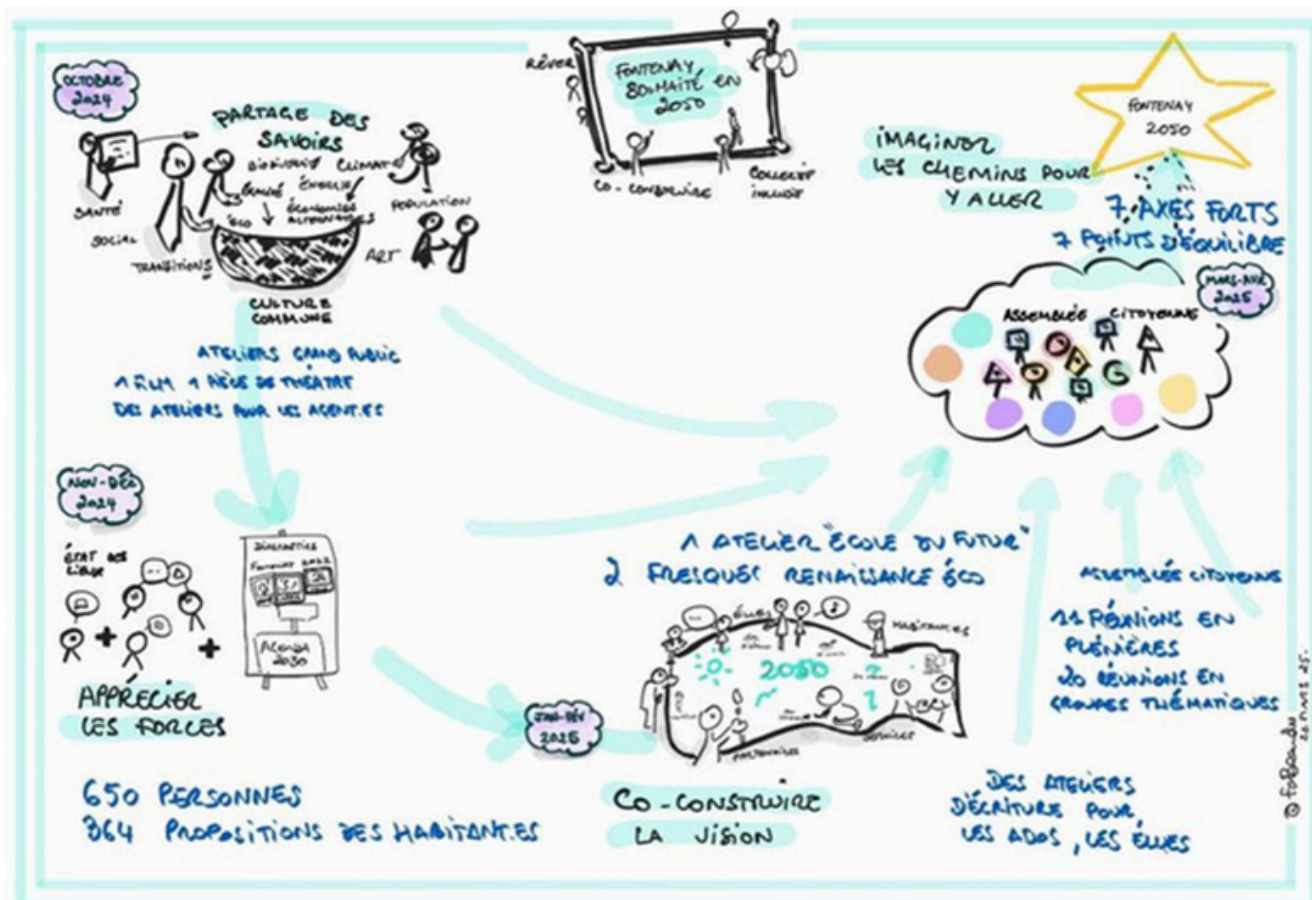 OCTOBRE
2024
PARTAGE DES
SAVOIRS
BIODIVERSITÉ CLIMAT
ÉNERGIE
ÉCO
ÉCONOMIES
ALTERNATIVES
SANTÉ
SOCIAL
TRANSITIONS
POPULATION
ART
CULTURE
COMMUNE
ATELIERS GRAND PUBLIC
1 FILM 1 PIÈCE DE THÉÂTRE
DES ATELIERS POUR LES AGENT.ES
RÊVER
FONTENAY
SOUHAITÉ EN
2050
CO-CONSTRUIRE
COLLECTIF
INCLUSIF
IMAGINER
LES CHEMINS POUR
Y ALLER
FONTENAY
2050
7 AXES FORTS
7 POINTS D'ÉQUILIBRE
MARS-AVR
2025
ASSEMBLÉE CITOYENNE
NOV-DÉC
2024
ÉTAT DES
LIEUX
DIAGNOSTICS
AGENDA
2030
APPRÉCIER
LES FORCES
650 PERSONNES
364 PROPOSITIONS DES HABITANT.ES
1 ATELIER "ÉCOLE DU FUTUR"
2 FRESQUES RENAISSANCE ÉCO
ÉLUES
HABITANT.ES
2050
PARTENAIRES
SERVICES
2025
CO-CONSTRUIRE
LA VISION
ASSEMBLÉE CITOYENNE
11 RÉUNIONS EN
PLÉNIÈRES
20 RÉUNIONS EN
GROUPES THÉMATIQUES
DES ATELIERS
D'ÉCRITURE POUR
LES ADOS, LES ÉLUES